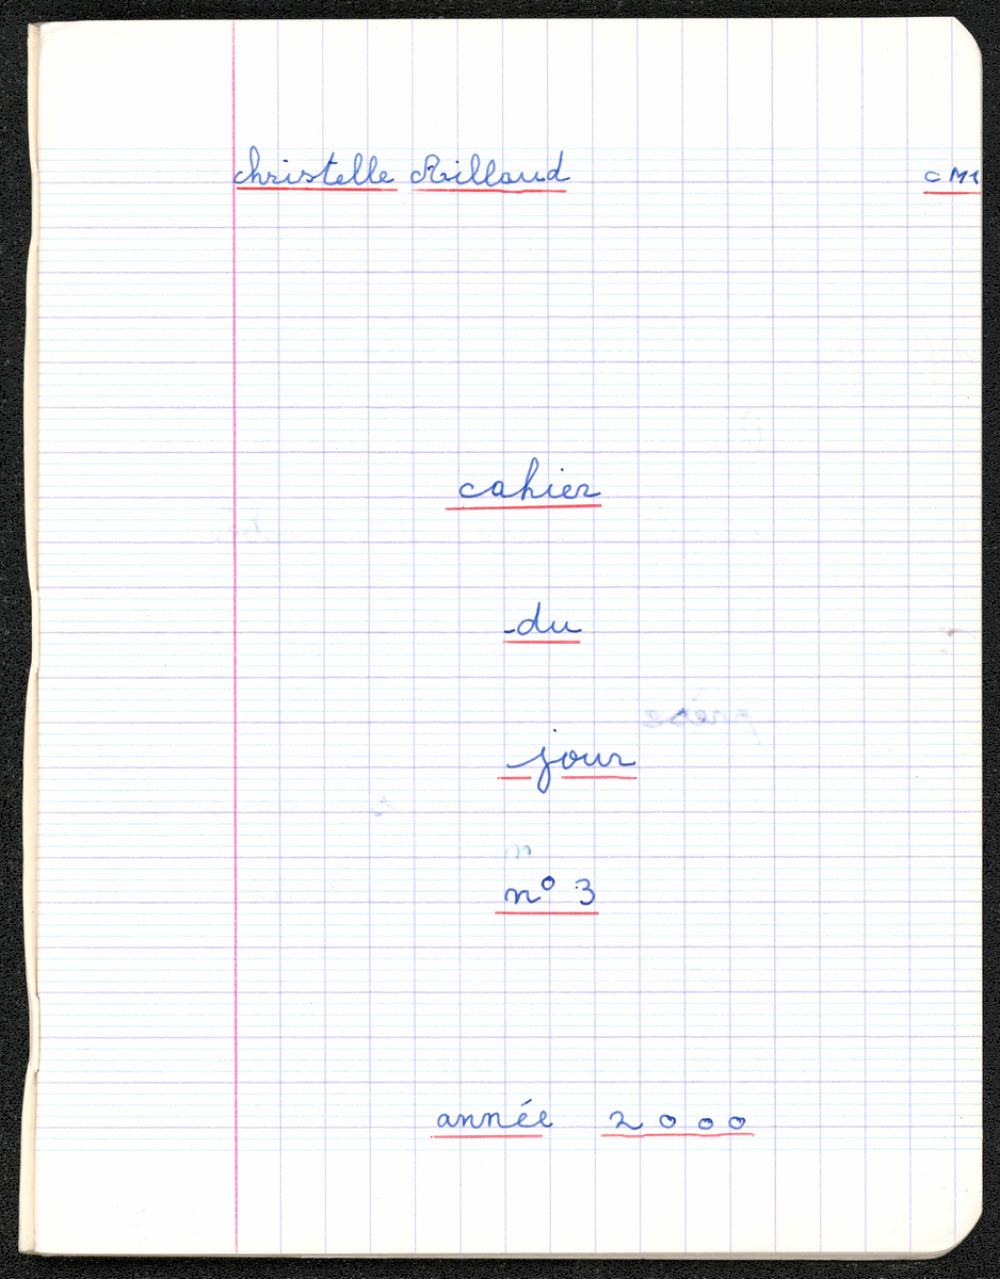 christelle Rilloud CM1
cahier
du
jour
n
n° 3
année 2000